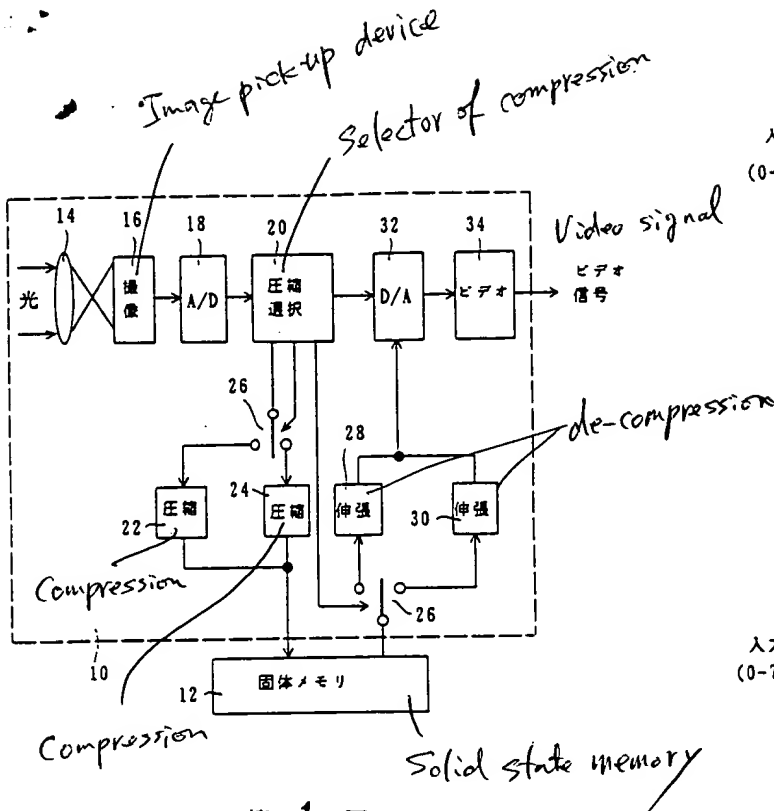 Image pick-up device
Selector of compression
入
(0-
Video signal
14
16
18
20
32
34
光
撮像
A/D
圧縮
選択
D/A
ビデオ
ビデオ
信号
26
de-compression
28
22
圧縮
24
圧縮
伸張
30
伸張
Compression
26
入力
10
12
固体メモリ
Compression
Solid state memory